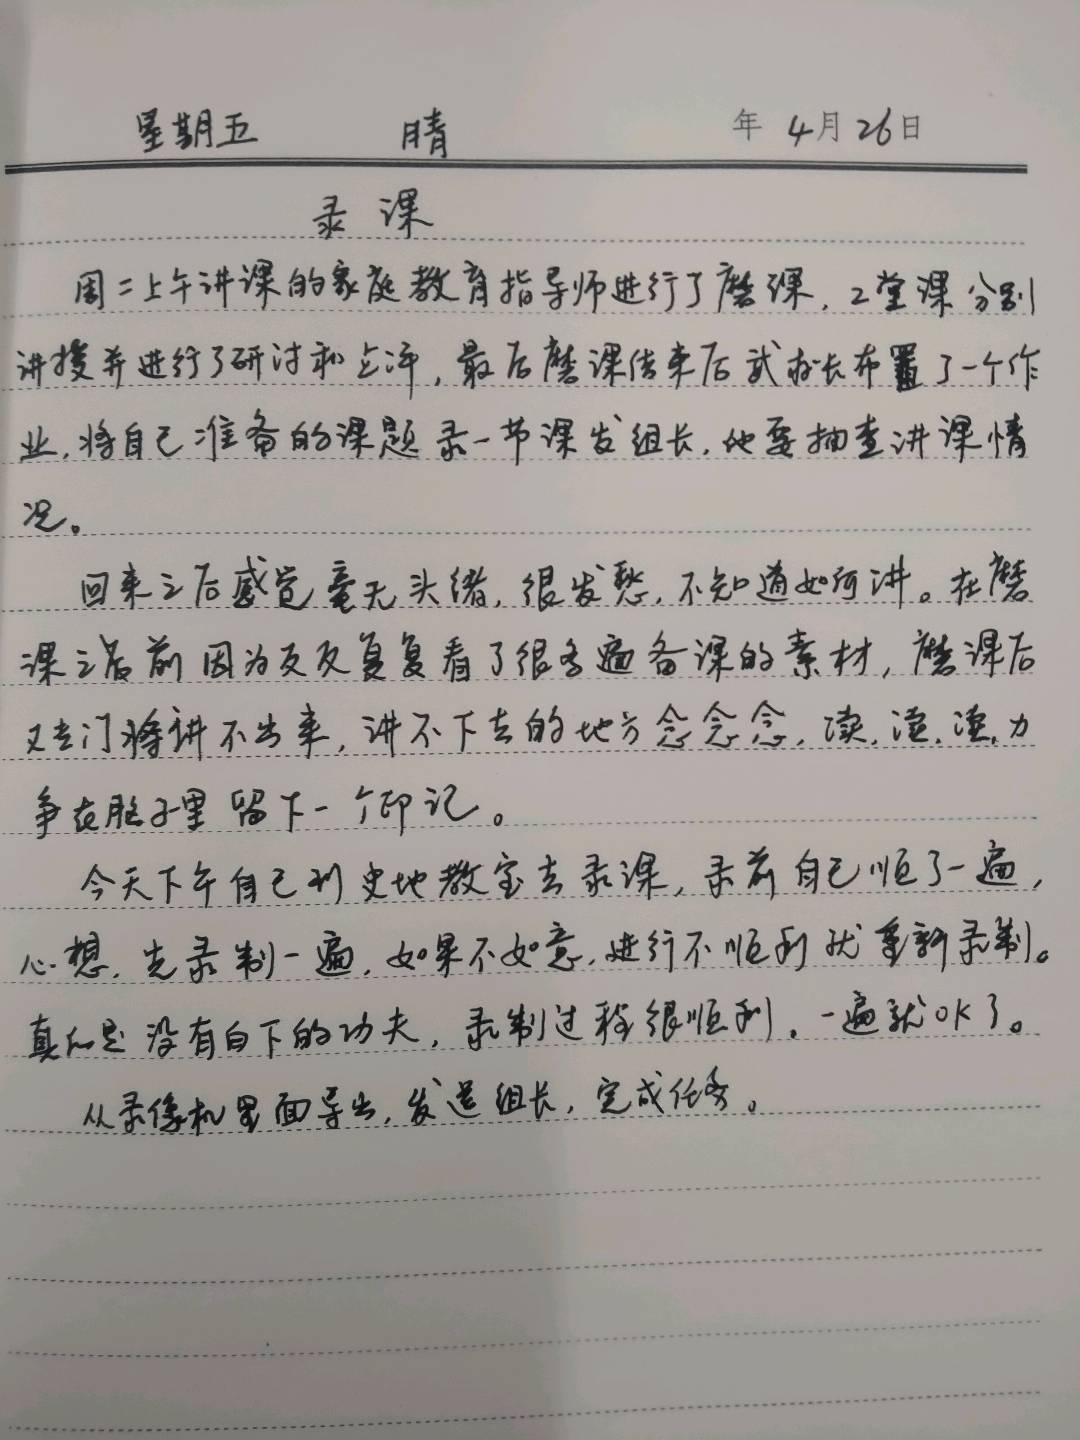 星期五 晴 年 4月26日
录课
周二上午讲课的家庭教育指导师进行了磨课，2堂课分别
讲授并进行了研讨和点评，最后磨课结束后武校长布置了一个作
业，将自己准备的课题录一节课发组长，她要抽查讲课情
况。
回来之后感觉毫无头绪，很发愁，不知道如何讲。在磨
课之前因为反反复复看了很多遍备课的素材，磨课后
又专门将讲不出来，讲不下去的地方念念念，读，读，读，力
争在脑子里留下一个印记。
今天下午自己到史地教室去录课，录前自己顺了一遍，
心想，先录制一遍，如果不如意，进行不顺利就重新录制。
真的是没有白下的功夫，录制过程很顺利，一遍就OK了。
从录像机里面导出，发送组长，完成任务。